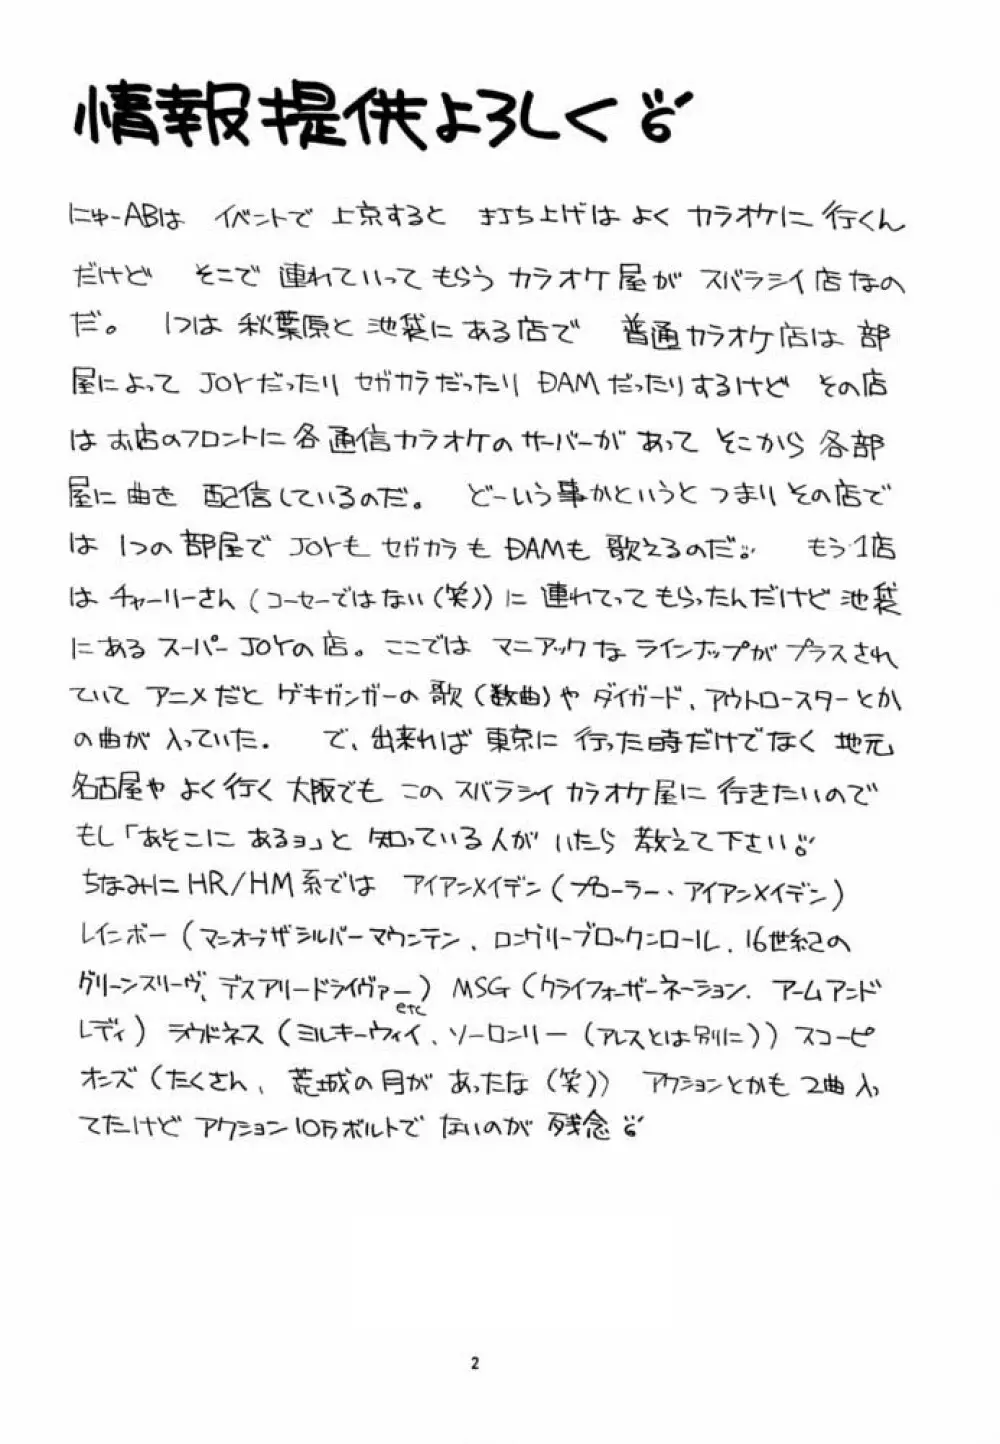 情報提供よろしく
にゅーABは イベントで 上京すると 打ち上げは よく カラオケに 行くん
だけど そこで 連れていって もらう カラオケ屋が スバラシイ店なの
だ。 1つは 秋葉原と 池袋に ある店で 普通カラオケ店は 部
屋によって JOYだったり セガカラだったり DAMだったりするけど その店
は お店のフロントに 各通信カラオケの サーバーが あって そこから 各部
屋に 曲を 配信しているのだ。 どーいう事かというと つまり その店で
は 1つの 部屋で JOYも セガカラも DAMも 歌えるのだ。 もう1店
は チャーリーさん(コーセーではない(笑))に 連れてって もらったんだけど 池袋
にある スーパーJOYの店。ここでは マニアックな ラインナップが プラスされ
ていて アニメだと ゲキガンガーの 歌(数曲)や ダイガード、アウトロースターとか
の曲が 入っていた. で、出来れば 東京に 行った時だけでなく 地元
名古屋や よく行く 大阪でも この スバラシイ カラオケ屋に 行きたいので
もし「あそこに あるョ」と 知っている人が いたら 教えて下さい。
ちなみにHR/HM系では アイアンメイデン(プローラー、アイアンメイデン)
レインボー(マンオーブザシルバーマウンテン、ロングリーブロックンロール、16世紀の
グリーンスリーヴ、デスアリードライヴァー etc)MSG(クライフォーザーネーション. アームアンド
レディ)ラウドネス(ミルキーウェイ、ソーロンリー(アレスとは別に))スコーピ
オンズ(たくさん、荒城の月が あったな(笑)) アクションとかも 2曲入っ
てたけど アクション10万ボルトで ないのが 残念
2